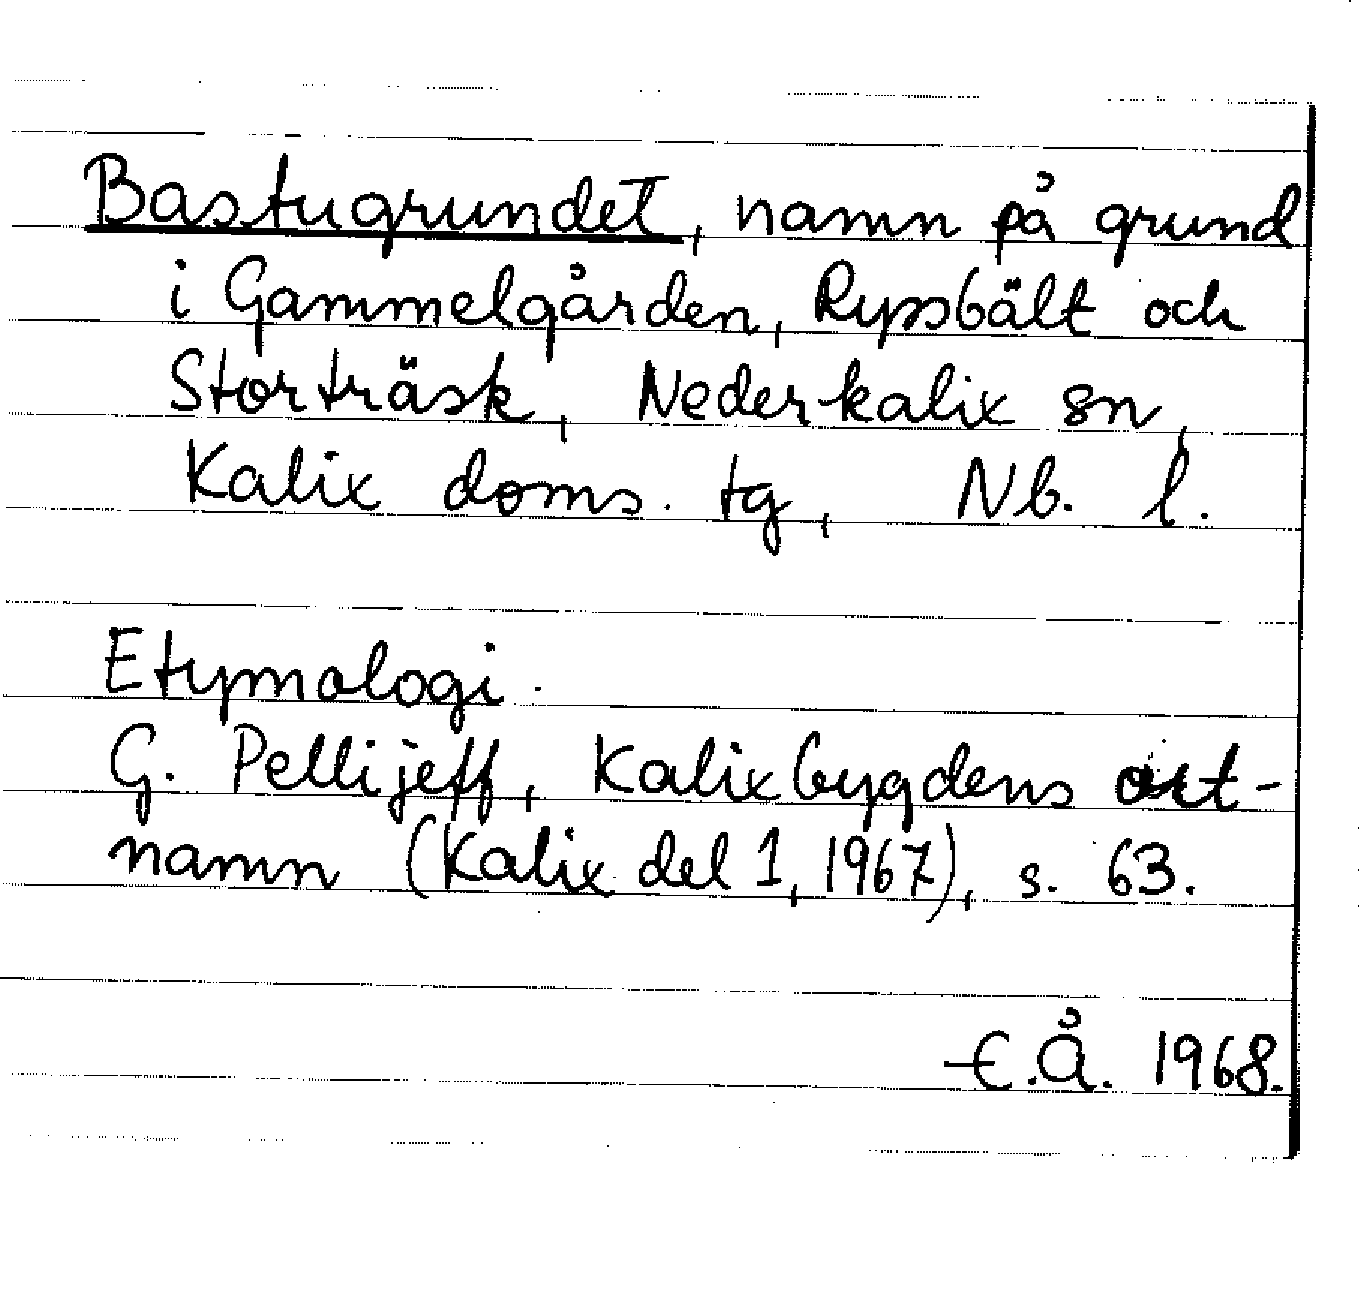 Bastugrundet, namn på grund
i Gammelgården, Ryssbält och
Storträsk, Nederkalix sn,
Kalix doms. tg, Nb. l.
Etymologi.
G. Pellijeff, Kalixbygdens ort-
namn (Kalix del 1, 1967), s. 63.
E.Å. 1968.